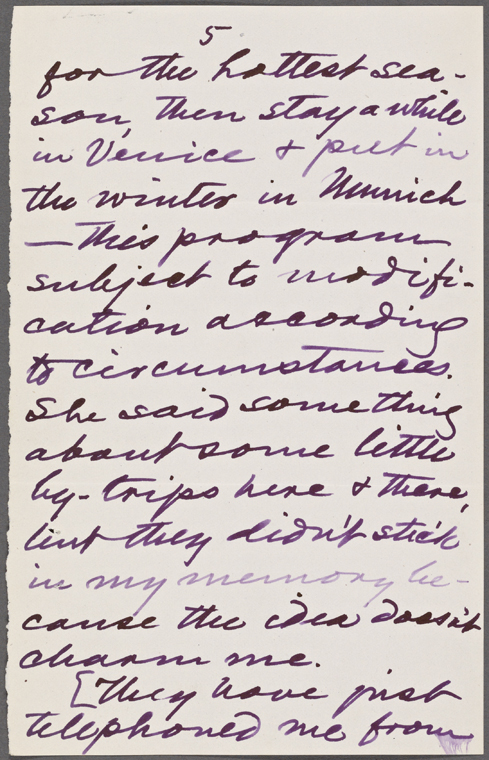 5
for the hottest sea-
son, then stay a while
in Venice & put in
the winter in Munich
—this program
subject to modifi-
cation according
to circumstances.
She said something
about some little
by-trips here & there,
but they didn't stick
in my memory be-
cause the idea doesn't
charm me.
[They have just
telephoned me from